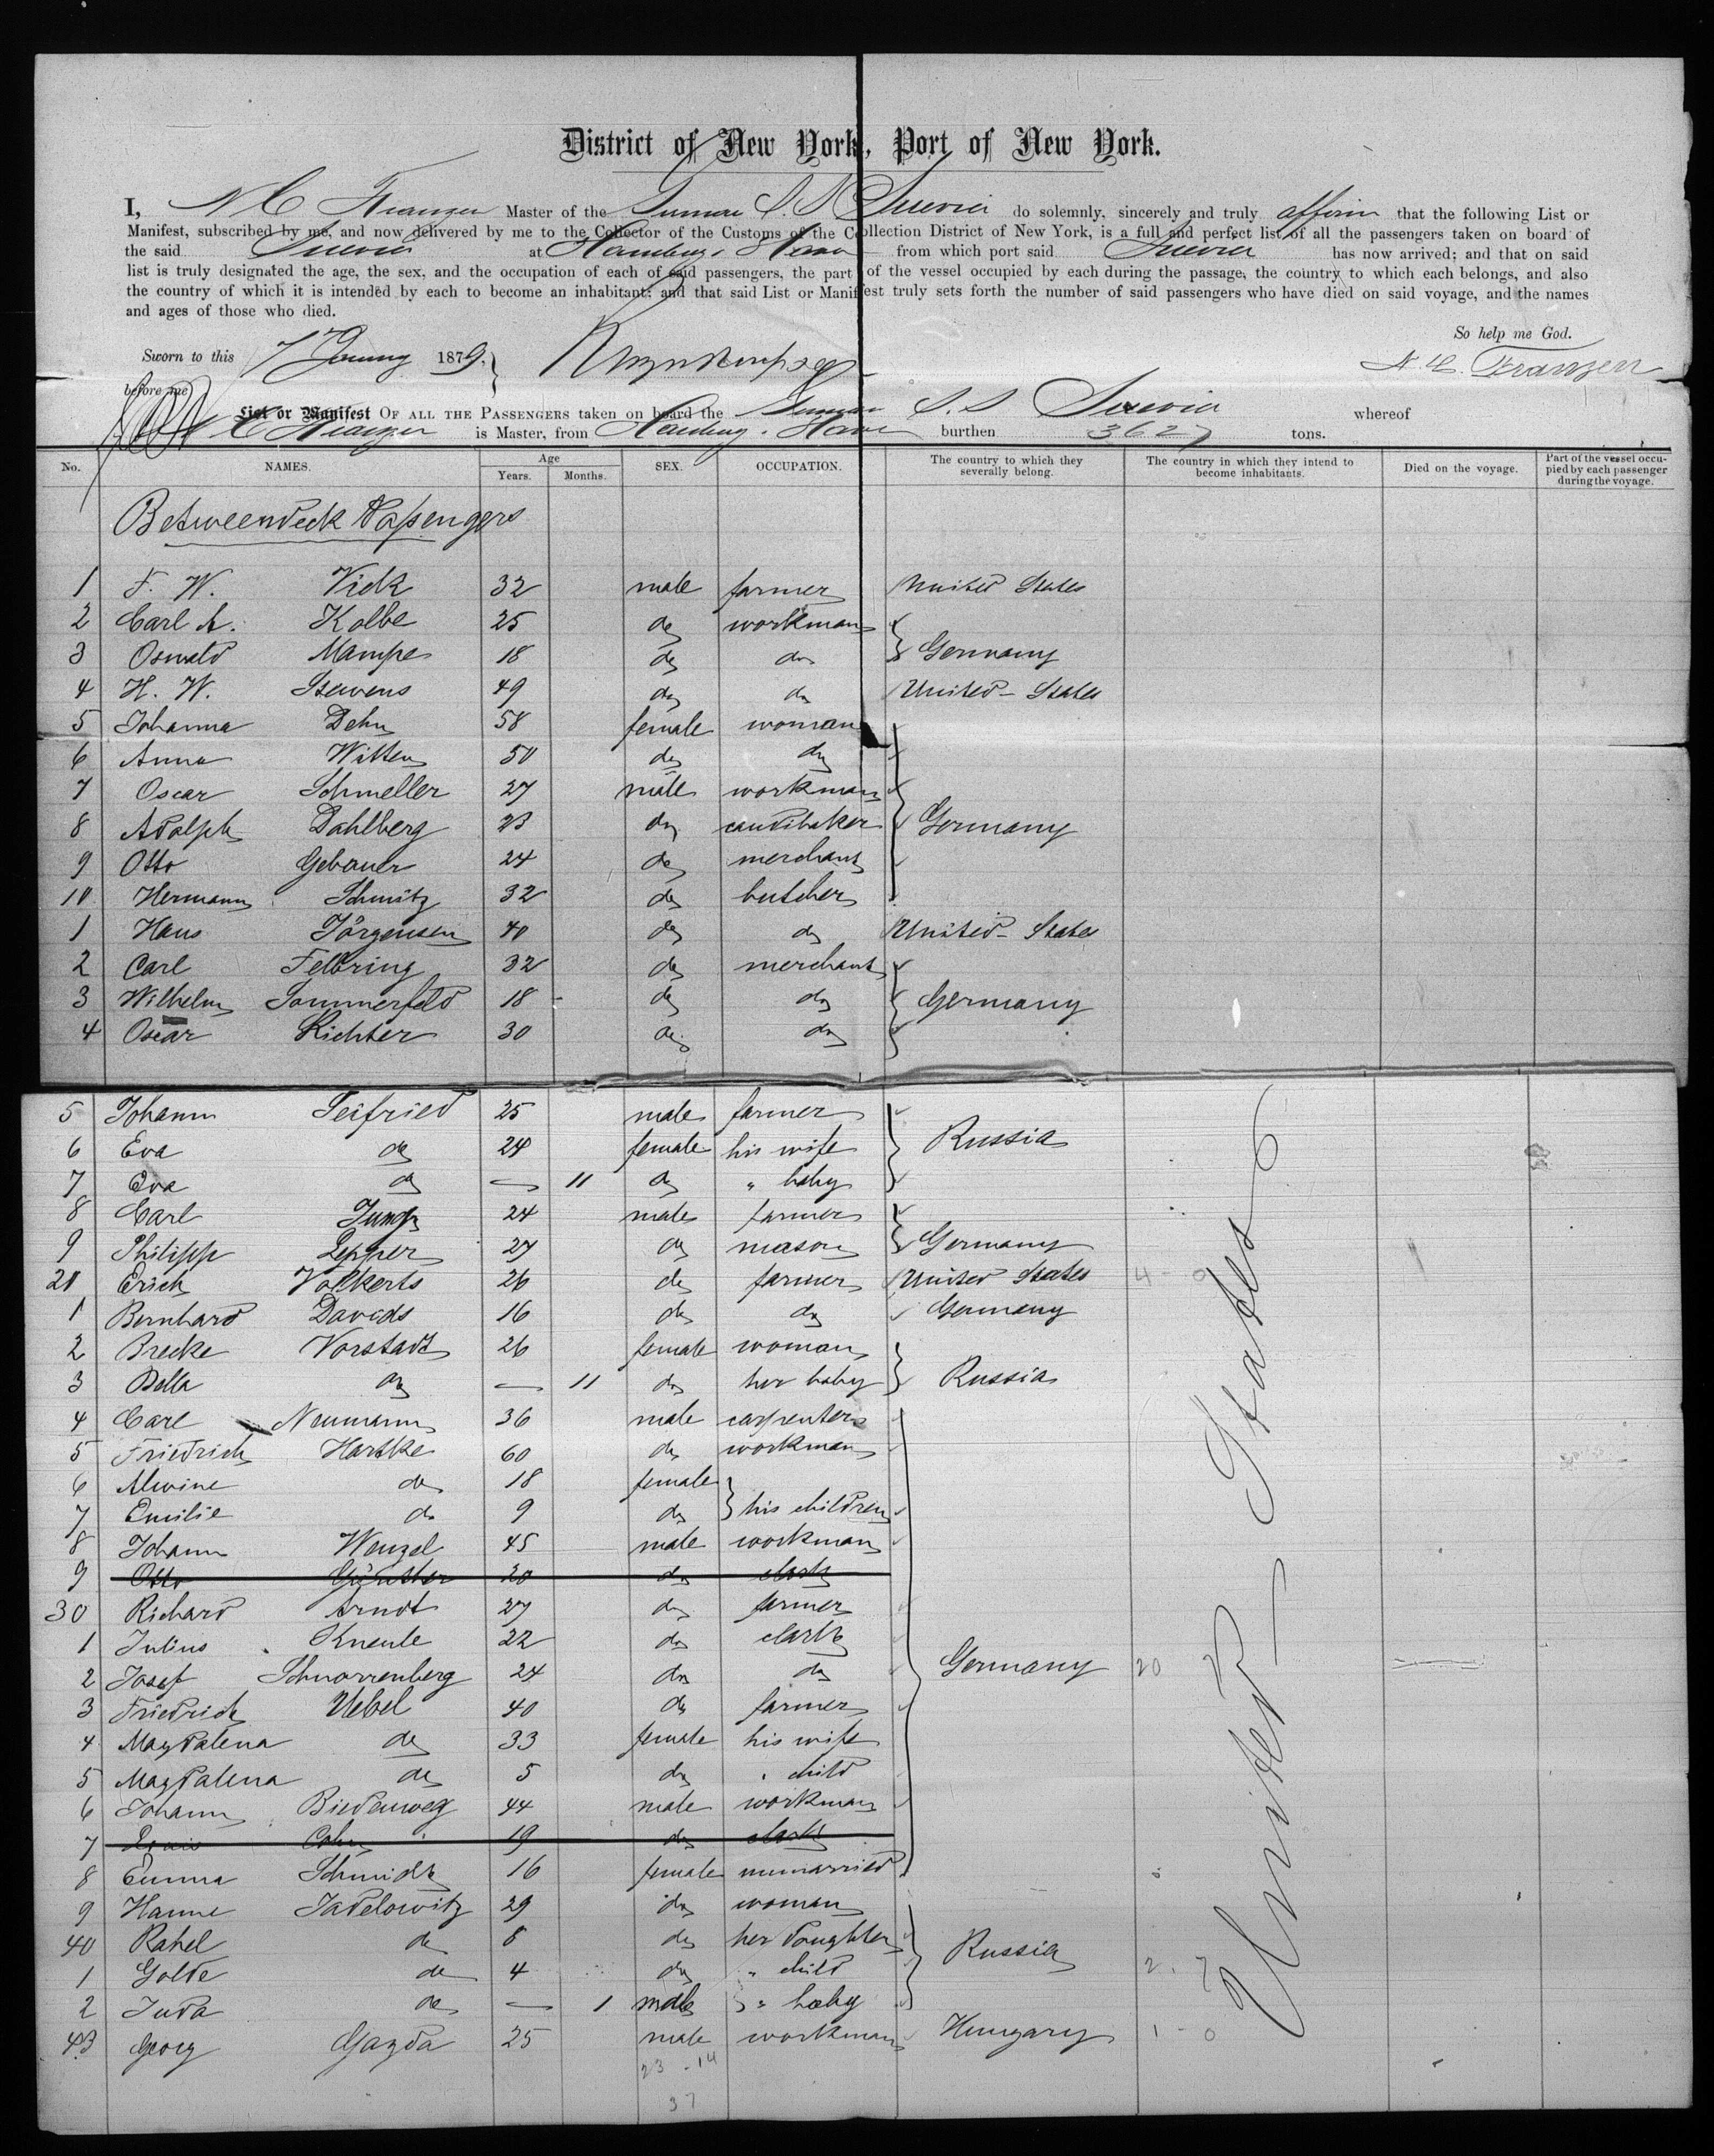 District of New York, Port of New York.
I, N C Franzen Master of the German S. S Suevia do solemnly, sincerely and truly affirm that the following List or
Manifest, subscribed by me, and now delivered by me to the Collector of the Customs of the Collection District of New York, is a full and perfect list of all the passengers taken on board of
the said Suevia at Hamburg, Havre from which port said Suevia has now arrived; and that on said
list is truly designated the age, the sex, and the occupation of each of said passengers, the part of the vessel occupied by each during the passage, the country to which each belongs, and also
the country of which it is intended by each to become an inhabitant: and that said List or Manifest truly sets forth the number of said passengers who have died on said voyage, and the names
and ages of those who died.
So help me God.
Sworn to this 7 January 1879. N. C. Franzen
before me
List or Manifest OF ALL THE PASSENGERS taken on board the German S. S Suevia whereof
N C Franzen is Master, from Hamburg. Havre burthen 3627 tons.
No. NAMES. Age Years. Months. SEX. OCCUPATION. The country to which they severally belong. The country in which they intend to become inhabitants. Died on the voyage. Part of the vessel occupied by each passenger during the voyage.
Betweendeck Passengers
1 F. W. Vick 32 male farmer United States
2 Carl A. Kolbe 25 do workman
3 Oswald Mampe 18 do do Germany
4 H. W. Stevens 49 do do United-States
5 Johanna Dehn 58 female woman
6 Anna Witten 50 do do
7 Oscar Schmeller 27 male workman
8 Adolph Dahlberg 23 do candibaker Germany
9 Otto Gebauer 24 do merchant
10 Hermann Schmitz 32 do butcher
1 Hans Jörgensen 40 do do United-States
2 Carl Felbring 32 do merchant
3 Wilhelm Sommerfeld 18 do do Germany
4 Oscar Richter 30 do do
5 Johann Seifried 25 male farmer
6 Eva do 24 female his wife Russia
7 Eva do — 11 do " baby
8 Carl Jung 24 male farmer
9 Philipp Lepper 27 do mason Germany
20 Erich Volkerts 26 do farmer United States 4 - 0
1 Bernhard Davids 16 do do Germany
2 Brecke Vorstadt 26 female woman
3 Bella do — 11 do her baby Russia
4 Carl Neumann 36 male carpenter
5 Friedrich Hartke 60 do workman
6 Alwine do 18 female
7 Emilie do 9 do his children
8 Johann Wenzel 45 male workman
9 Otto Günther 20 do clark
30 Richard Arndt 27 do farmer
1 Julius Kneule 22 do clark
2 Josef Schnorrenberg 24 do do Germany 20
3 Friedrich Uebel 40 do farmer
4 Magdalena do 33 female his wife
5 Magdalena do 5 do " child
6 Johann Biedenweg 44 male workman
7 Louis Cohn 19 do clark
8 Emma Schmidt 16 female unmarried
9 Hanne Jadelowitz 29 do woman
40 Rahel do 8 do her daughter Russia
1 Golde do 4 do " child 2. 7
2 Juda do — 1 male " baby
43 Georg Gazda 25 male workman Hungary 1 - 0
United States
23 - 14
37